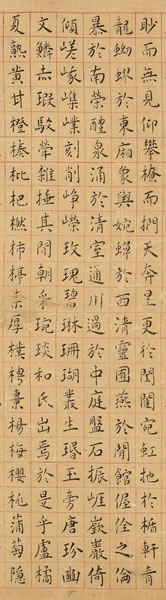 眇而無見仰攀橑而捫天奔星更於閨闥宛虹扡於楯軒青
龍蚴蟉於東廂象輿婉蟬於西清靈圉燕於閒館偓佺之倫
暴於南榮醴泉涌於清室通川過於中庭盤石振崖嶔巖倚
傾嵯峩㠎嶫刻削崢嶸玫瑰碧琳珊瑚叢生瑉玉旁唐玢豳
文鱗赤瑕駁犖雜插其間朝采琬琰和氏出焉於是乎盧橘
夏熟黃甘橙楱枇杷橪柿楟柰厚樸梬棗楊梅櫻桃蒲萄隱